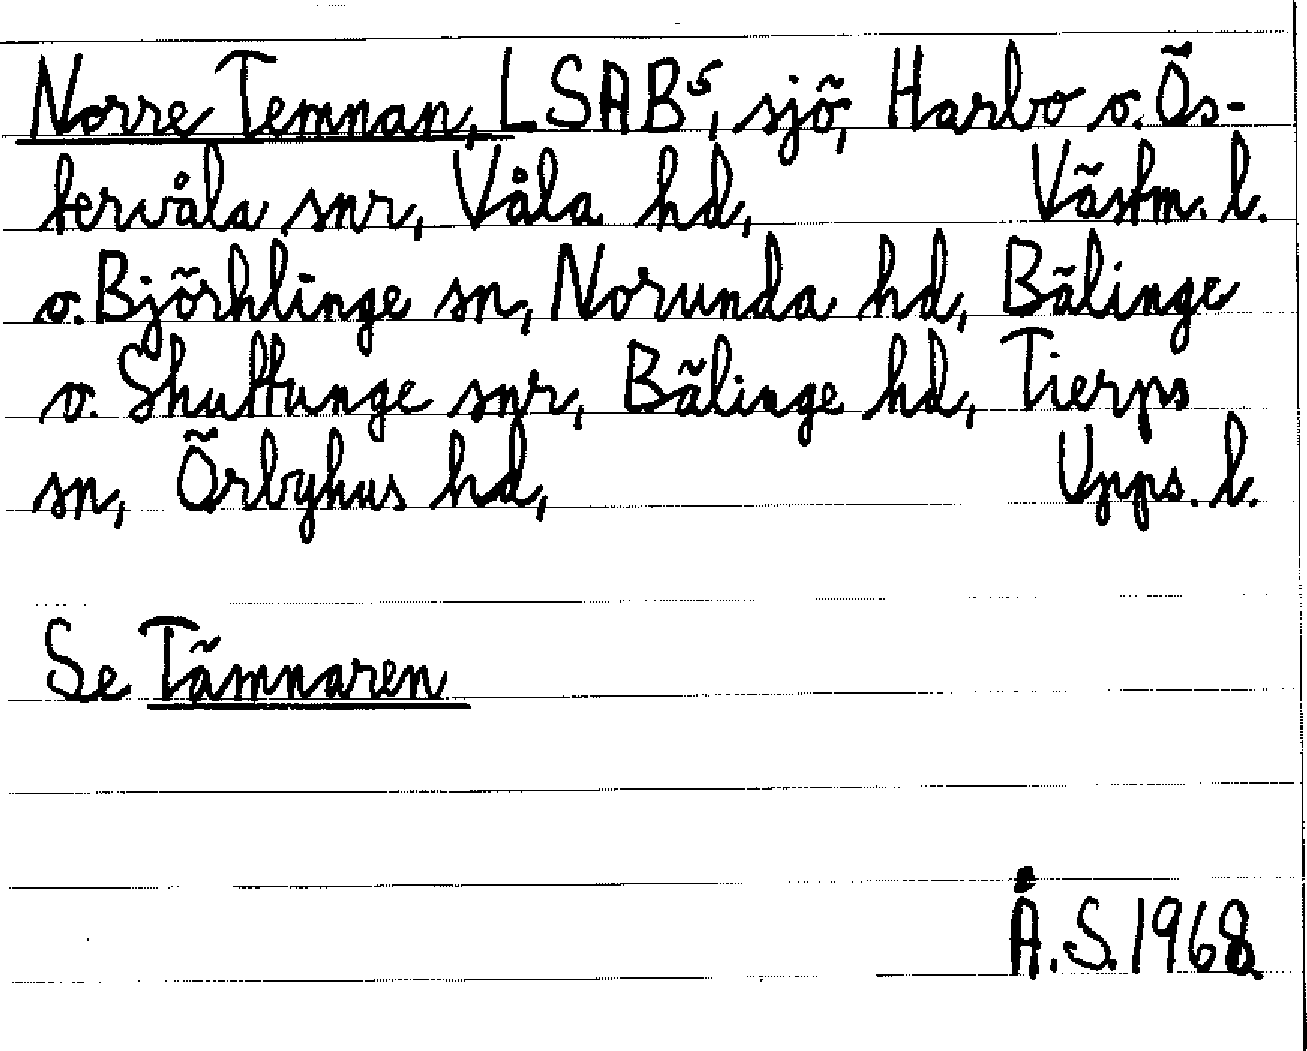 Norre Temnan, LSAB⁵, sjö, Harbo o. Ös-
tervåla snr, Våla hd, Västm. l.
o. Björklinge sn, Norunda hd, Bälinge
o. Skuttunge snr, Bälinge hd, Tierps
sn, Örbyhus hd, Upps. l.
Se Tämnaren
Å.S. 1968